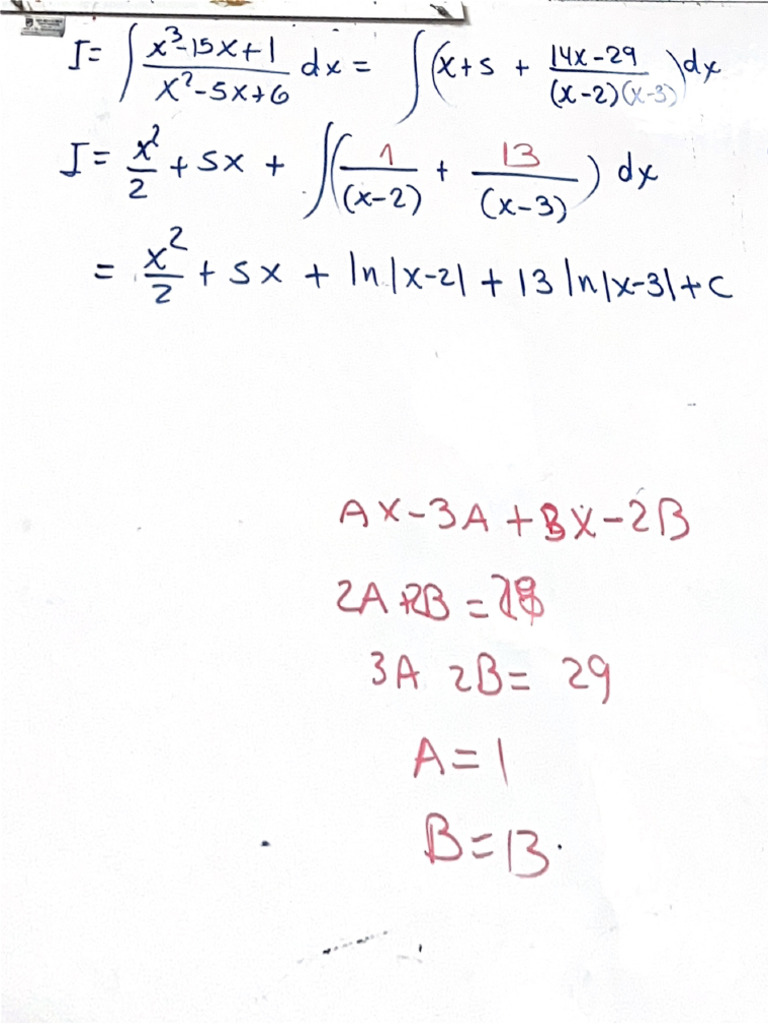 I = ∫ (x³-15x+1)/(x²-5x+6) dx = ∫ (x+5 + (14x-29)/((x-2)(x-3))) dx
I = x²/2 + 5x + ∫ (1/(x-2) + 13/(x-3)) dx
= x²/2 + 5x + ln|x-2| + 13 ln|x-3| + C
AX-3A+BX-2B
2A+2B=28
3A 2B= 29
A=1
B=13.